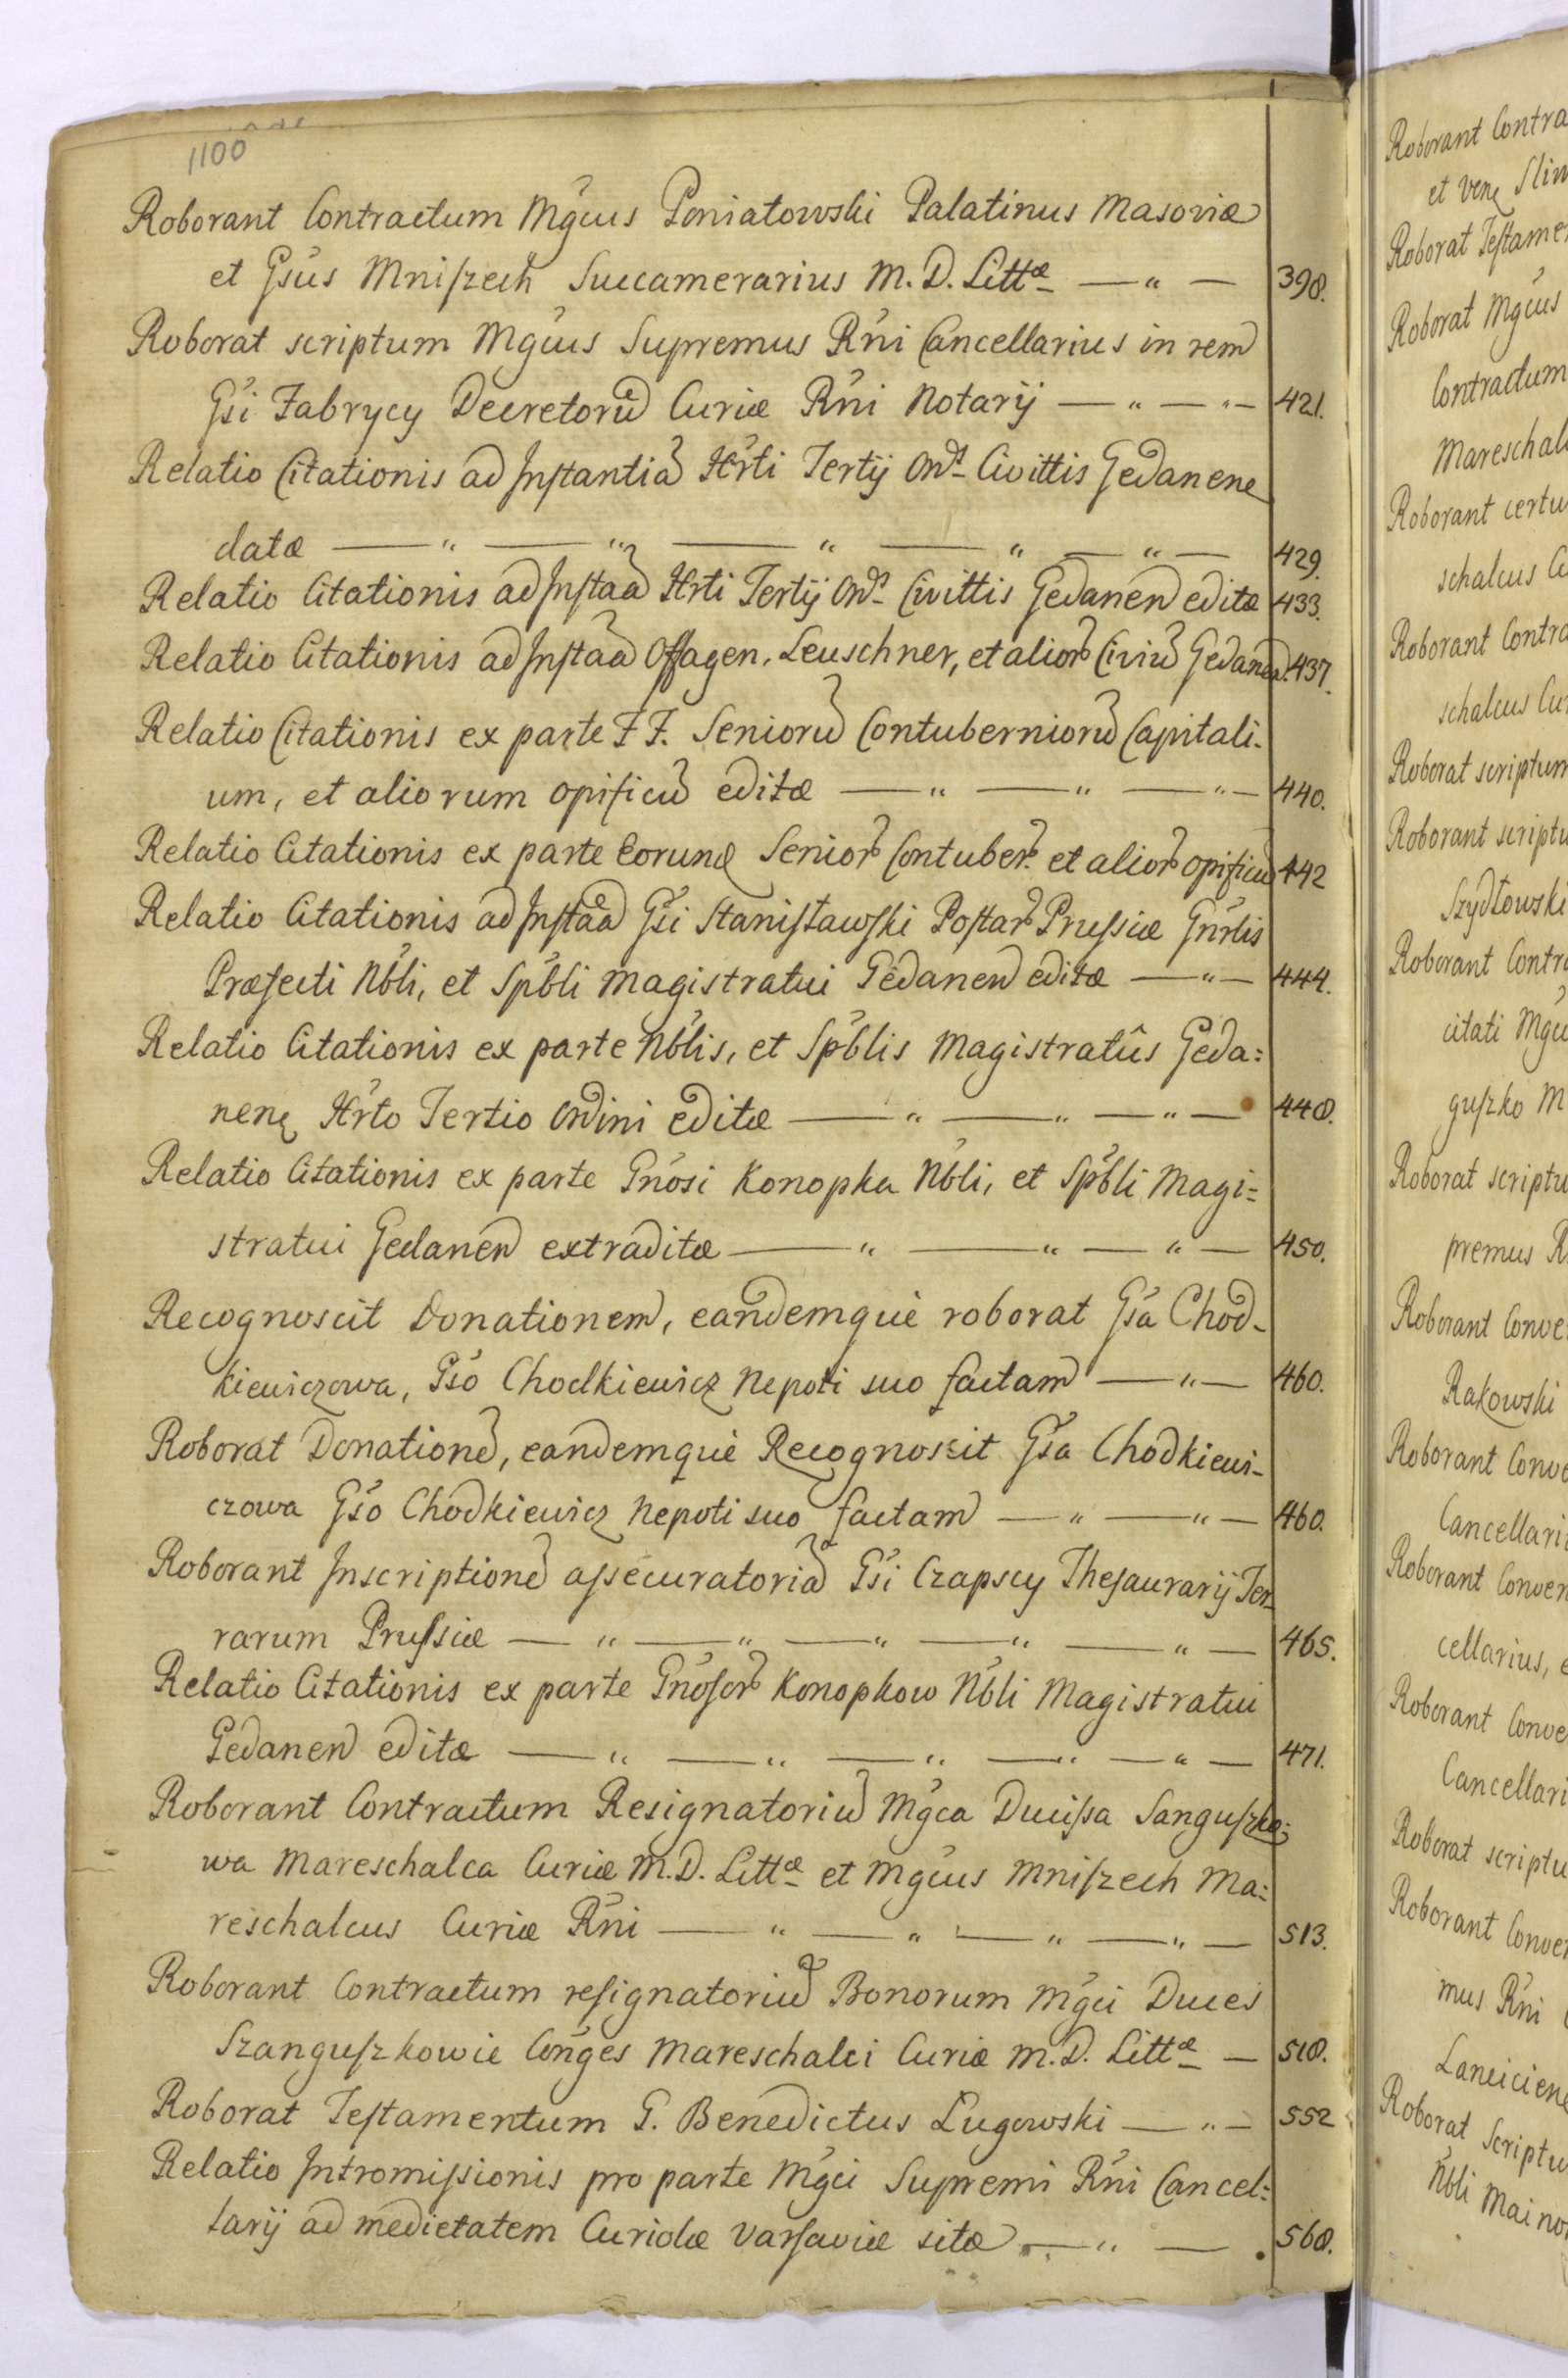 1100
Roborant Contractum Mgcus Poniatowski Palatinus Masoviæ
et Gsus Mniszech Succamerarius M. D. Littæ — " — 398.
Roborat scriptum Mgcus Supremus Rni Cancellarius in rem
Gsi Fabrycy Decretorũ Curiæ Rni Notarij — " — " — 421.
Relatio Citationis ad Instantiã Hrti Tertij Ordis Civittis Gedanene
datæ — " — " — " — " — " — 429.
Relatio Citationis ad Instaã Hrti Tertij Ordis Civittis Gedanen editæ 433.
Relatio Citationis ad Instaã Offagen. Leuschner, et alior Civiũ Gedanen. 437.
Relatio Citationis ex parte F F. Seniorũ Contuberniorũ Capitali-
um, et aliorum opificũ editæ — " — " — " — 440.
Relatio Citationis ex parte Eorund Senior Contuber. et alior opificũ 442
Relatio Citationis ad Instaã Gsi Stanisławski Postar Prussiæ Gnrlis
Præfecti Nbli, et Spbli Magistratui Gedanen editæ — " — 444.
Relatio Citationis ex parte Nblis, et Spblis Magistratûs Geda:
nenę Hrto Tertio Ordini editæ — " — " — " — 448.
Relatio Citationis ex parte Gnosi Konopka Nbli, et Spbli Magi=
stratui Gedanen extraditæ — " — " — " — 450.
Recognoscit Donationem, eandemque roborat Gsa Chod-
kiewiczowa, Gso Chodkiewicz Nepoti suo factam — " — 460.
Roborat Donationẽ, eandemque Recognoscit Gsa Chodkiewi-
czowa Gso Chodkiewicz Nepoti suo factam — " — " — 460.
Roborant Inscriptionẽ assecuratoriã Gsi Czapscy Thesaurarij Ter-
rarum Prussiæ — " — " — " — " — " — 465.
Relatio Citationis ex parte Gnosor Konopkow Nbli Magistratui
Gedanen editæ — " — " — " — " — " — 471.
Roborant Contractum Resignatoriũ Mgca Ducissa Sanguszko:
wa Mareschalca Curiæ M. D. Littæ et Mgcus Mniszech Ma:
reschalcus Curiæ Rni — " — " — " — " — 513.
Roborant Contractum resignatoriũ Bonorum Mgci Duces
Szanguszkowie Conges Mareschalci Curiæ M. D. Littæ — 518.
Roborat Testamentum G. Benedictus Lugowski — " — 552
Relatio Intromissionis pro parte Mgci Supremi Rni Cancel:
larij ad medietatem Curiolæ Varsaviæ sitæ — " — 568.
Roborant Contra
et Venę Slim
Roborat Testame
Roborat Mgcus
Contractum
Mareschal
Roborant certu
schalcus C
Roborant Contra
schalcus Cu
Roborat scriptum
Roborant scriptu
Szydłowski
Roborant Contra
citati Mgc
guszko M
Roborat scriptu
premus R
Roborant Conve
Rakowski
Roborant Conve
Cancellari
Roborant Conven
cellarius, e
Roborant Conve
Cancellari
Roborat scriptu
Roborant Conven
mus Rni
Lanciciene
Roborat Scriptu
Nbli Maino